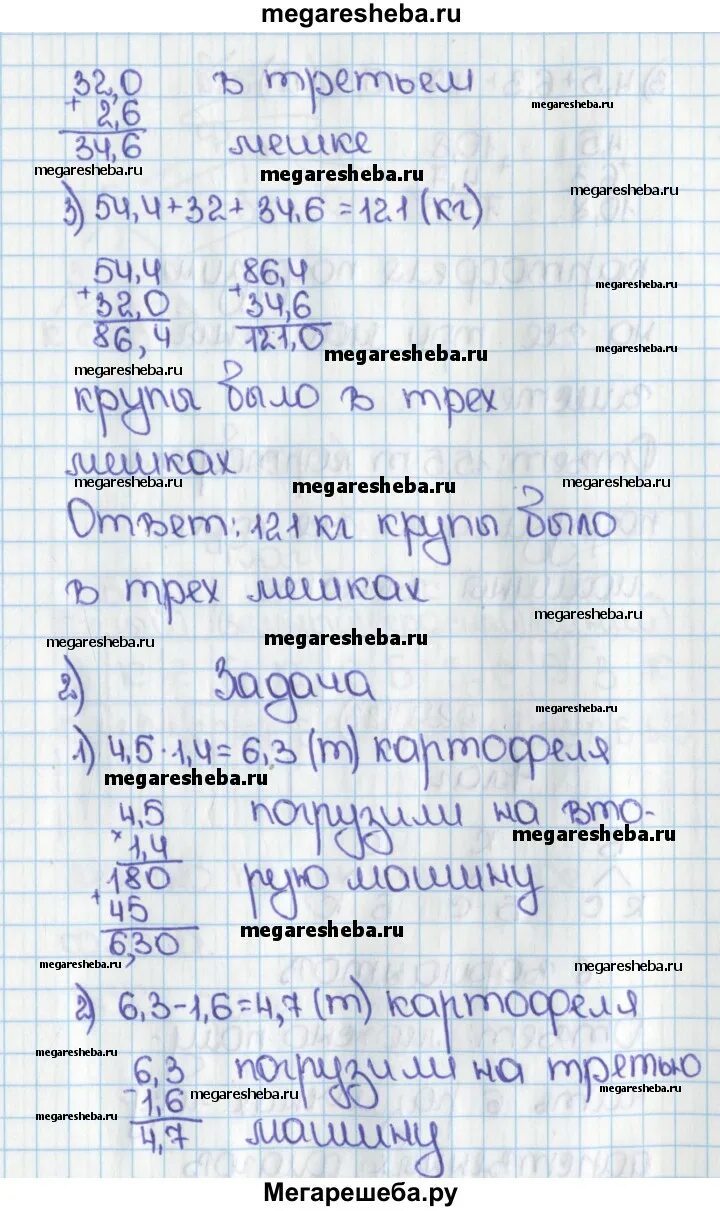 megaresheba.ru
32,0 в третьем
+ 2,6 megaresheba.ru
34,6 мешке
megaresheba.ru megaresheba.ru megaresheba.ru
3) 54,4+32+34,6=121(кг)
54,4 86,4
+32,0 +34,6 megaresheba.ru
86,4 121,0 megaresheba.ru megaresheba.ru
megaresheba.ru
крупы было в трех
мешках
megaresheba.ru megaresheba.ru megaresheba.ru
Ответ: 121 кг крупы было
в трех мешках
megaresheba.ru
megaresheba.ru megaresheba.ru
2) Задача
megaresheba.ru
1) 4,5·1,4=6,3 (т) картофеля
megaresheba.ru
4,5 погрузили на вто-
×1,4 megaresheba.ru
180 рую машину
+45
6,30 megaresheba.ru
megaresheba.ru megaresheba.ru
2) 6,3-1,6=4,7 (т) картофеля
megaresheba.ru
6,3 погрузили на третью
-1,6 megaresheba.ru megaresheba.ru
megaresheba.ru
4,7 машину
Мегарешеба.ру